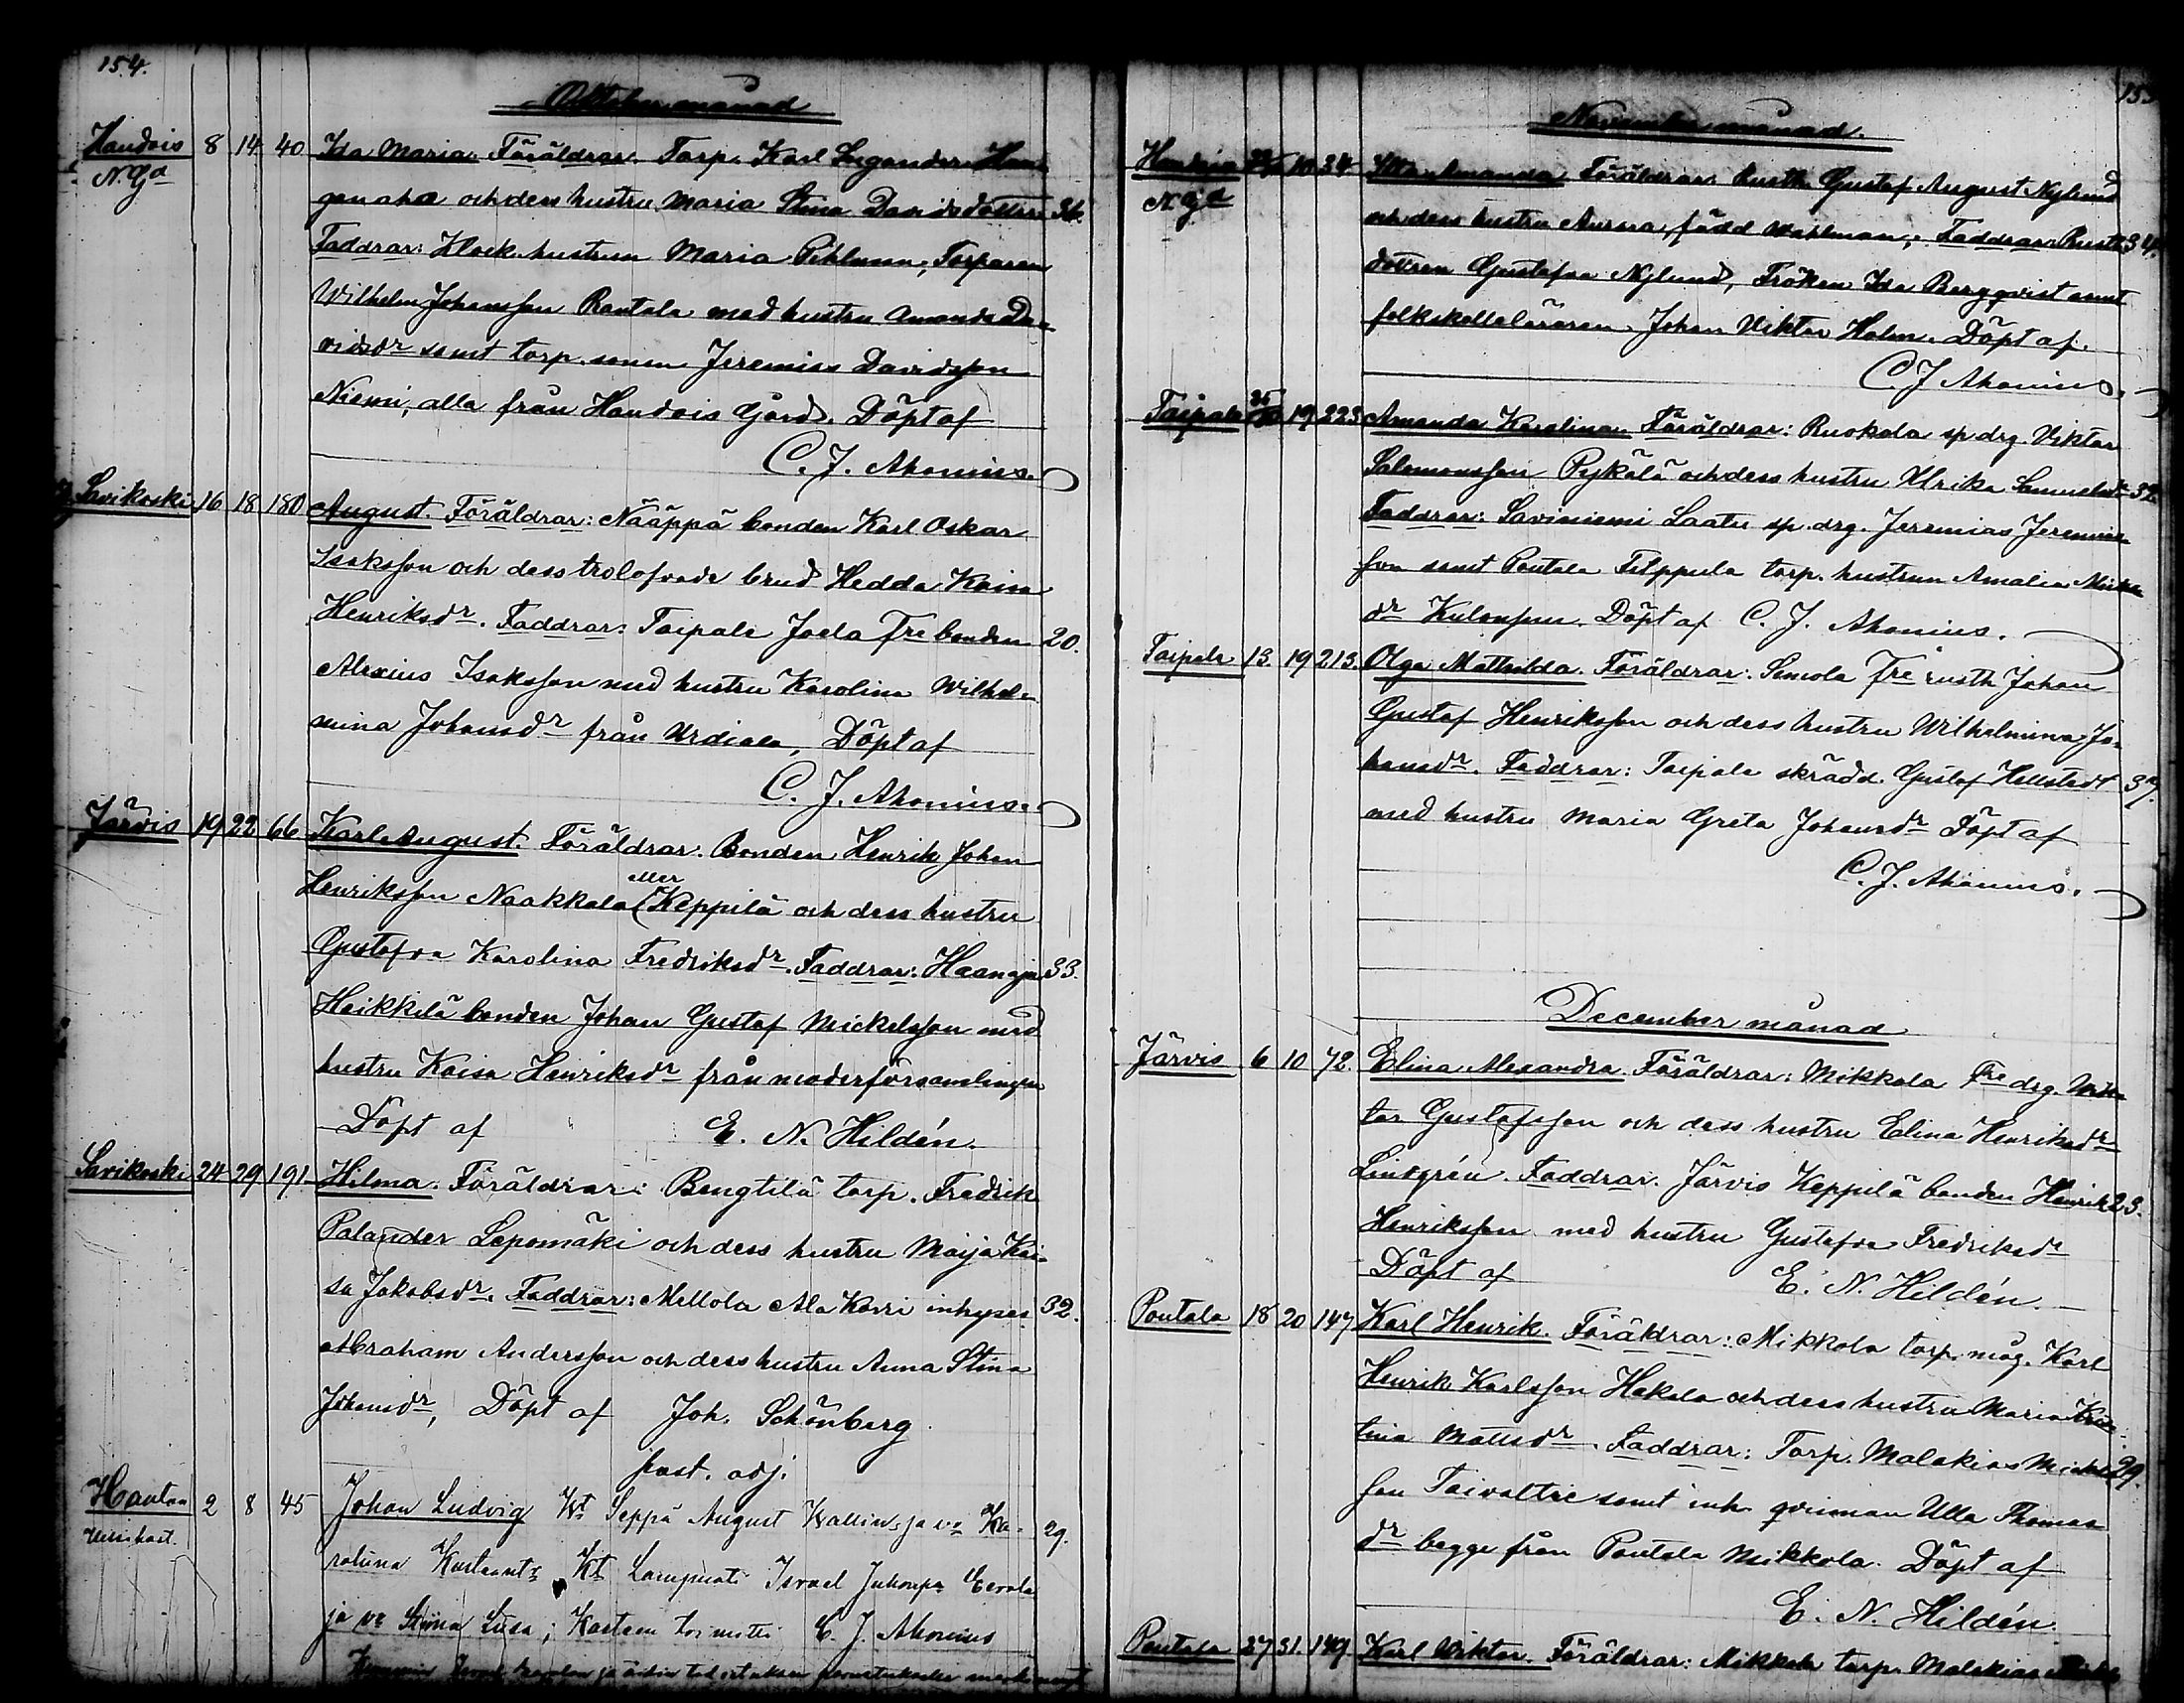 154.
Oktober månad
Haudois 8 14 40 Ida Maria. Föräldrar. Torp. Karl Legander Haa-
N. Gd
gan aha och dess hustru Maria Stina Davidsdotter 36.
Faddrar: Klock. hustrun Maria Pihlman, Torparen
Wilhelm Johansson Rantala med hustru Amanda Da-
vidsdr samt torp. sonen Jeremias Davidsson
Niemi, alla från Haudois Gård. Döpt af
C. J. Ahonius.
Savikoski 16 18 180 August. Föräldrar: Nääppä bonden Karl Oskar
Isaksson och dess trolofvade brud Hedda Kaisa
Henriksdr. Faddrar: Taipale Joela Fre bonden 20.
Alexius Isaksson med hustru Karolina Wilhel-
mina Johansdr från Urdiala, Döpt af
C. J. Ahonius.
Järvis 19 22 66 Karl August. Föräldrar. Bonden Henrik Johan
Henriksson Naakkala eller Keppilä och dess hustru
Gustafva Karolina Fredriksdr. Faddrar: Haanoja 33.
Heikkilä bonden Johan Gustaf Mickelsson med
hustru Kaisa Henriksdr från moderförsamlingen
Döpt af E. N. Hildén.
Savikoski 24 29 191 Hilma. Föräldrar: Bengtilä torp. Fredrik
Palander Lepomäki och dess hustru Maija Kai-
sa Jakobsdr. Faddrar: Mellola Ala Korri inhyses 32.
Abraham Andersson och dess hustru Anna Stina
Johansdr, Döpt af Joh. Schönberg
past. adj.
2 8 45 Johan Ludvig Wt Seppä August Wallin ja vo Ka- 29.
roliina Kustaantr Kt Israel Juhonp. Eerola
ja vo Stiina Liisa; Kasteen toimitti C. J. Ahonius
November månad.
10 34 Amanda Föräldrar: Rusth. Gustaf August Nylund
N. Gd
och dess hustru Aurora, född Wahlman; Faddrar: Rusth. 34.
dottren Gustafva Nylund, Fröken Ida Bergqvist samt
folkskolläraren Johan Viktor Holm. Döpt af
C. J. Ahonius.
Taipale 19 223 Amanda Karolina Föräldrar: Ruokola sp. drg. Viktor
Salomonsson PyKälä och dess hustru Ulrika Samuelsdr 32.
Faddrar: Saviniemi Laatu sp. drg. Jeremias Jeremias-
son samt Poutala Filppula torp. hustrun Amalia
dr Kulonpuu. Döpt af C. J. Ahonius.
Taipale 13 19 213 Olga Mathilda. Föräldrar: Simola Fre rusth. Johan
Gustaf Henriksson och dess hustru Wilhelmina Jo-
hansdr. Faddrar: Taipale skrädd. Gustaf Hellstedt 37.
med hustru Maria Greta Johansdr Döpt af
C. J. Ahonius.
December månad
Järvis 6 10 72. Elina Alexandra. Föräldrar: Mikkola Fre drg. Wik-
tor Gustafsson och dess hustru Elina Henriksdr
Lindgrén. Faddrar. Järvis Keppilä bonden Henrik 23.
Henriksson med hustru Gustafva Fredriksdr
Döpt af E. N. Hildén.
Poutala 18 20 147 Karl Henrik. Föräldrar: Mikkola torp. måg. Karl
Henrik Karlsson Hakala och dess hustru Maria Kris-
tina Mattsdr. Faddrar: Torp. Malakias Mickels- 29.
son Taivaltie samt inh. qvinnan Ulla Thomas
dr begge från Poutala Mikkola. Döpt af
E. N. Hildén.
Poutala 27 31. 149. Karl Viktor. Föräldrar: Mikkola torp. Malakias